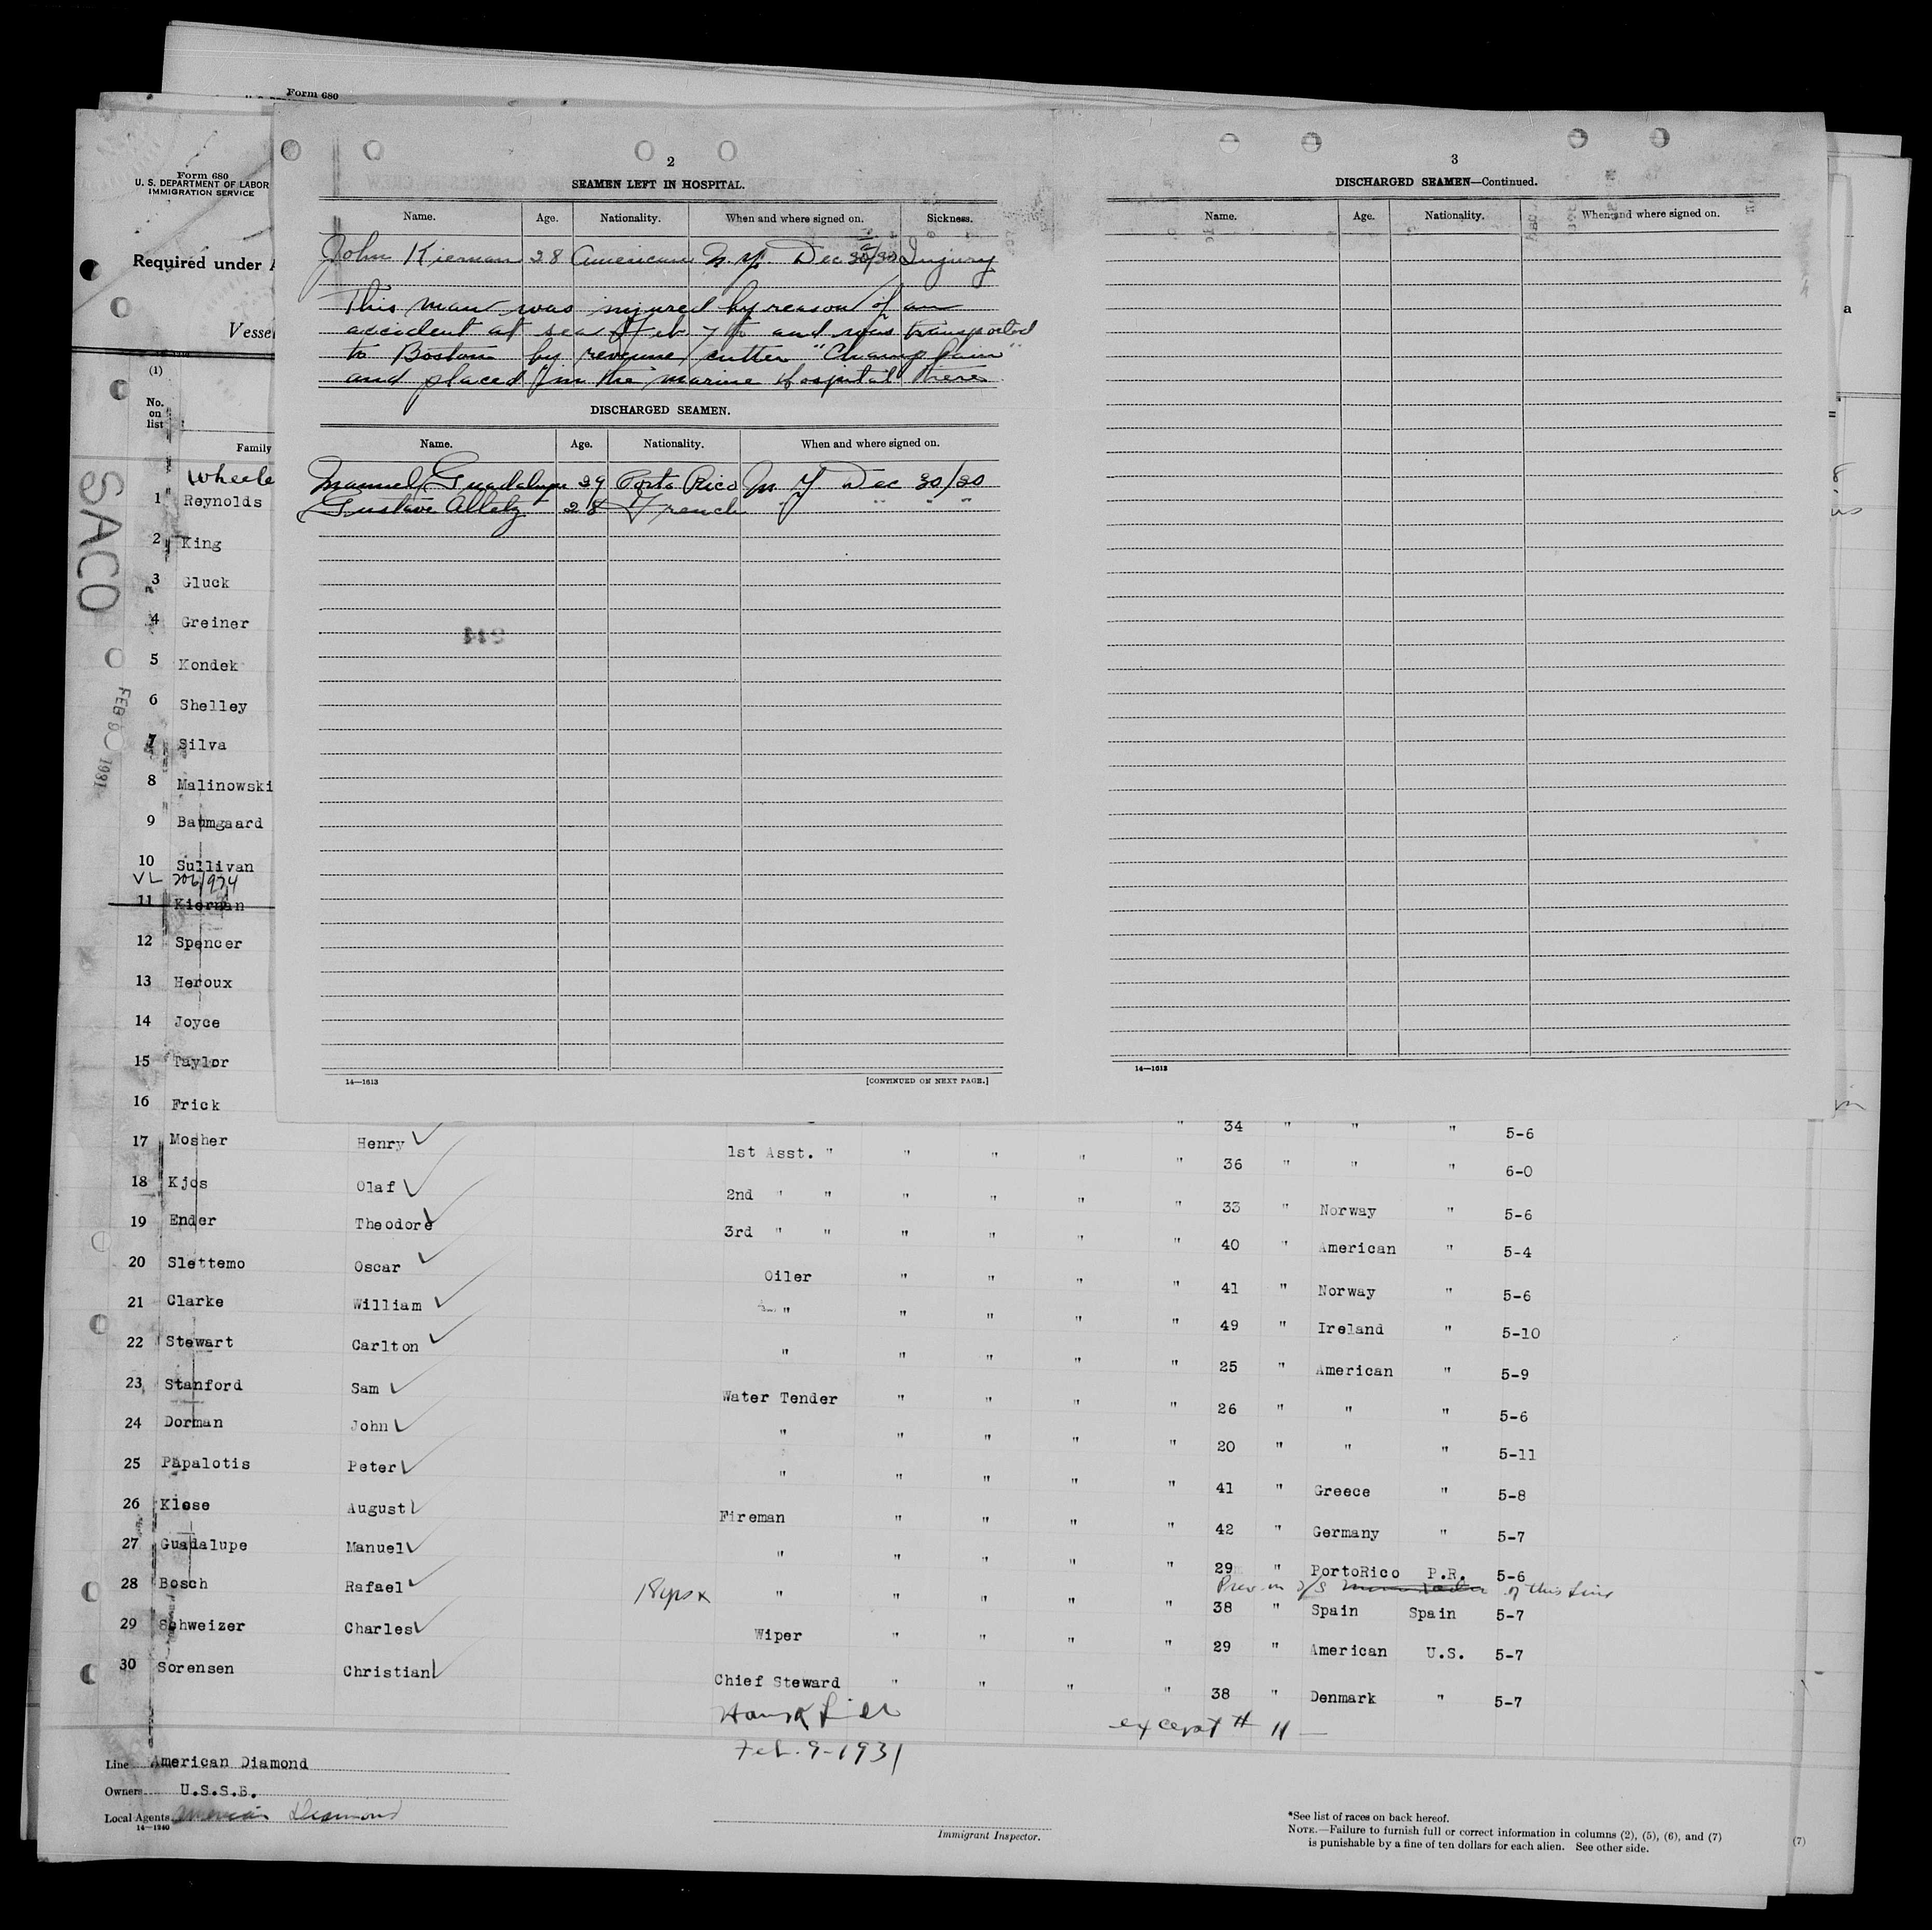 Form 680
Form 680
U. S. DEPARTMENT OF LABOR
IMMIGRATION SERVICE
Required under A
Vesse
(1)
No.
on
list
Family
Wheele
1 Reynolds
2 King
3 Gluck
4 Greiner
5 Kondek
6 Shelley
7 Silva
8 Malinowski
9 Baumgaard
10 Sullivan
VL 206/974
11 Kiernan
12 Spencer
13 Heroux
14 Joyce
15 Taylor
16 Frick
SACO
FEB 1931
2
SEAMEN LEFT IN HOSPITAL.
Name. Age. Nationality. When and where signed on. Sickness.
John Kiernan 28 American N.Y. Dec 30/30 Injury
This man was injured by reason of an
accident at sea Feb 7th and was transported
to Boston by revenue cutter "Champlain"
and placed in the marine Hospital there
DISCHARGED SEAMEN.
Name. Age. Nationality. When and where signed on.
Manuel Guadalupe 29 Porto Rico N Y Dec 30/30
Gustave 28 French " " " "
14—1613 [CONTINUED ON NEXT PAGE.]
3
DISCHARGED SEAMEN—Continued.
Name. Age. Nationality. When and where signed on.
14—1613
" 34 " " " 5-6
17 Mosher Henry 1st Asst. " " " " " 36 " " " 6-0
18 Kjos Olaf 2nd " " " " " " 33 " Norway " 5-6
19 Ender Theodore 3rd " " " " " " 40 " American " 5-4
20 Slettemo Oscar Oiler " " " " 41 " Norway " 5-6
21 Clarke William " " " " " 49 " Ireland " 5-10
22 Stewart Carlton " " " " " 25 " American " 5-9
23 Stanford Sam Water Tender " " " " 26 " " " 5-6
24 Dorman John " " " " " 20 " " " 5-11
25 Papalotis Peter " " " " " 41 " Greece " 5-8
26 Klose August Fireman " " " " 42 " Germany " 5-7
27 Guadalupe Manuel " " " " " 29 " PortoRico P.R. 5-6
Prev on S/S of this line
28 Bosch Rafael 18yrs x " " " " " 38 " Spain Spain 5-7
29 Schweizer Charles Wiper " " " " 29 " American U.S. 5-7
30 Sorensen Christian Chief Steward " " " " 38 " Denmark " 5-7
except # 11 —
Feb. 9-1931
Line American Diamond
Owners U.S.S.B.
Local Agents American Diamond
14—1240
Immigrant Inspector.
*See list of races on back hereof.
NOTE.—Failure to furnish full or correct information in columns (2), (5), (6), and (7)
is punishable by a fine of ten dollars for each alien. See other side.
(7)